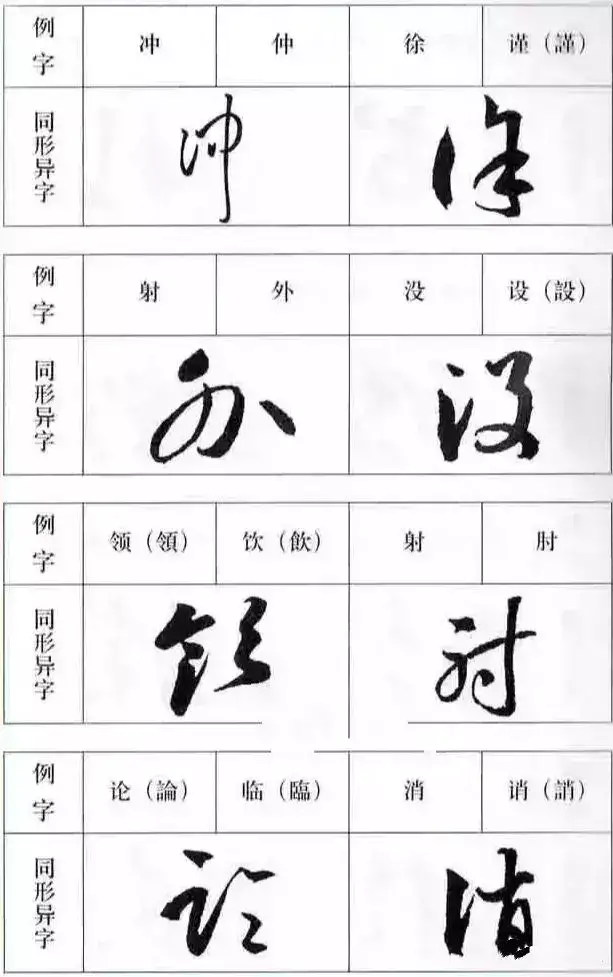 例字 冲 仲 徐 谨（謹）
同形异字
例字 射 外 没 设（設）
同形异字
例字 领（領） 饮（飲） 射 肘
同形异字
例字 论（論） 临（臨） 消 诮（誚）
同形异字